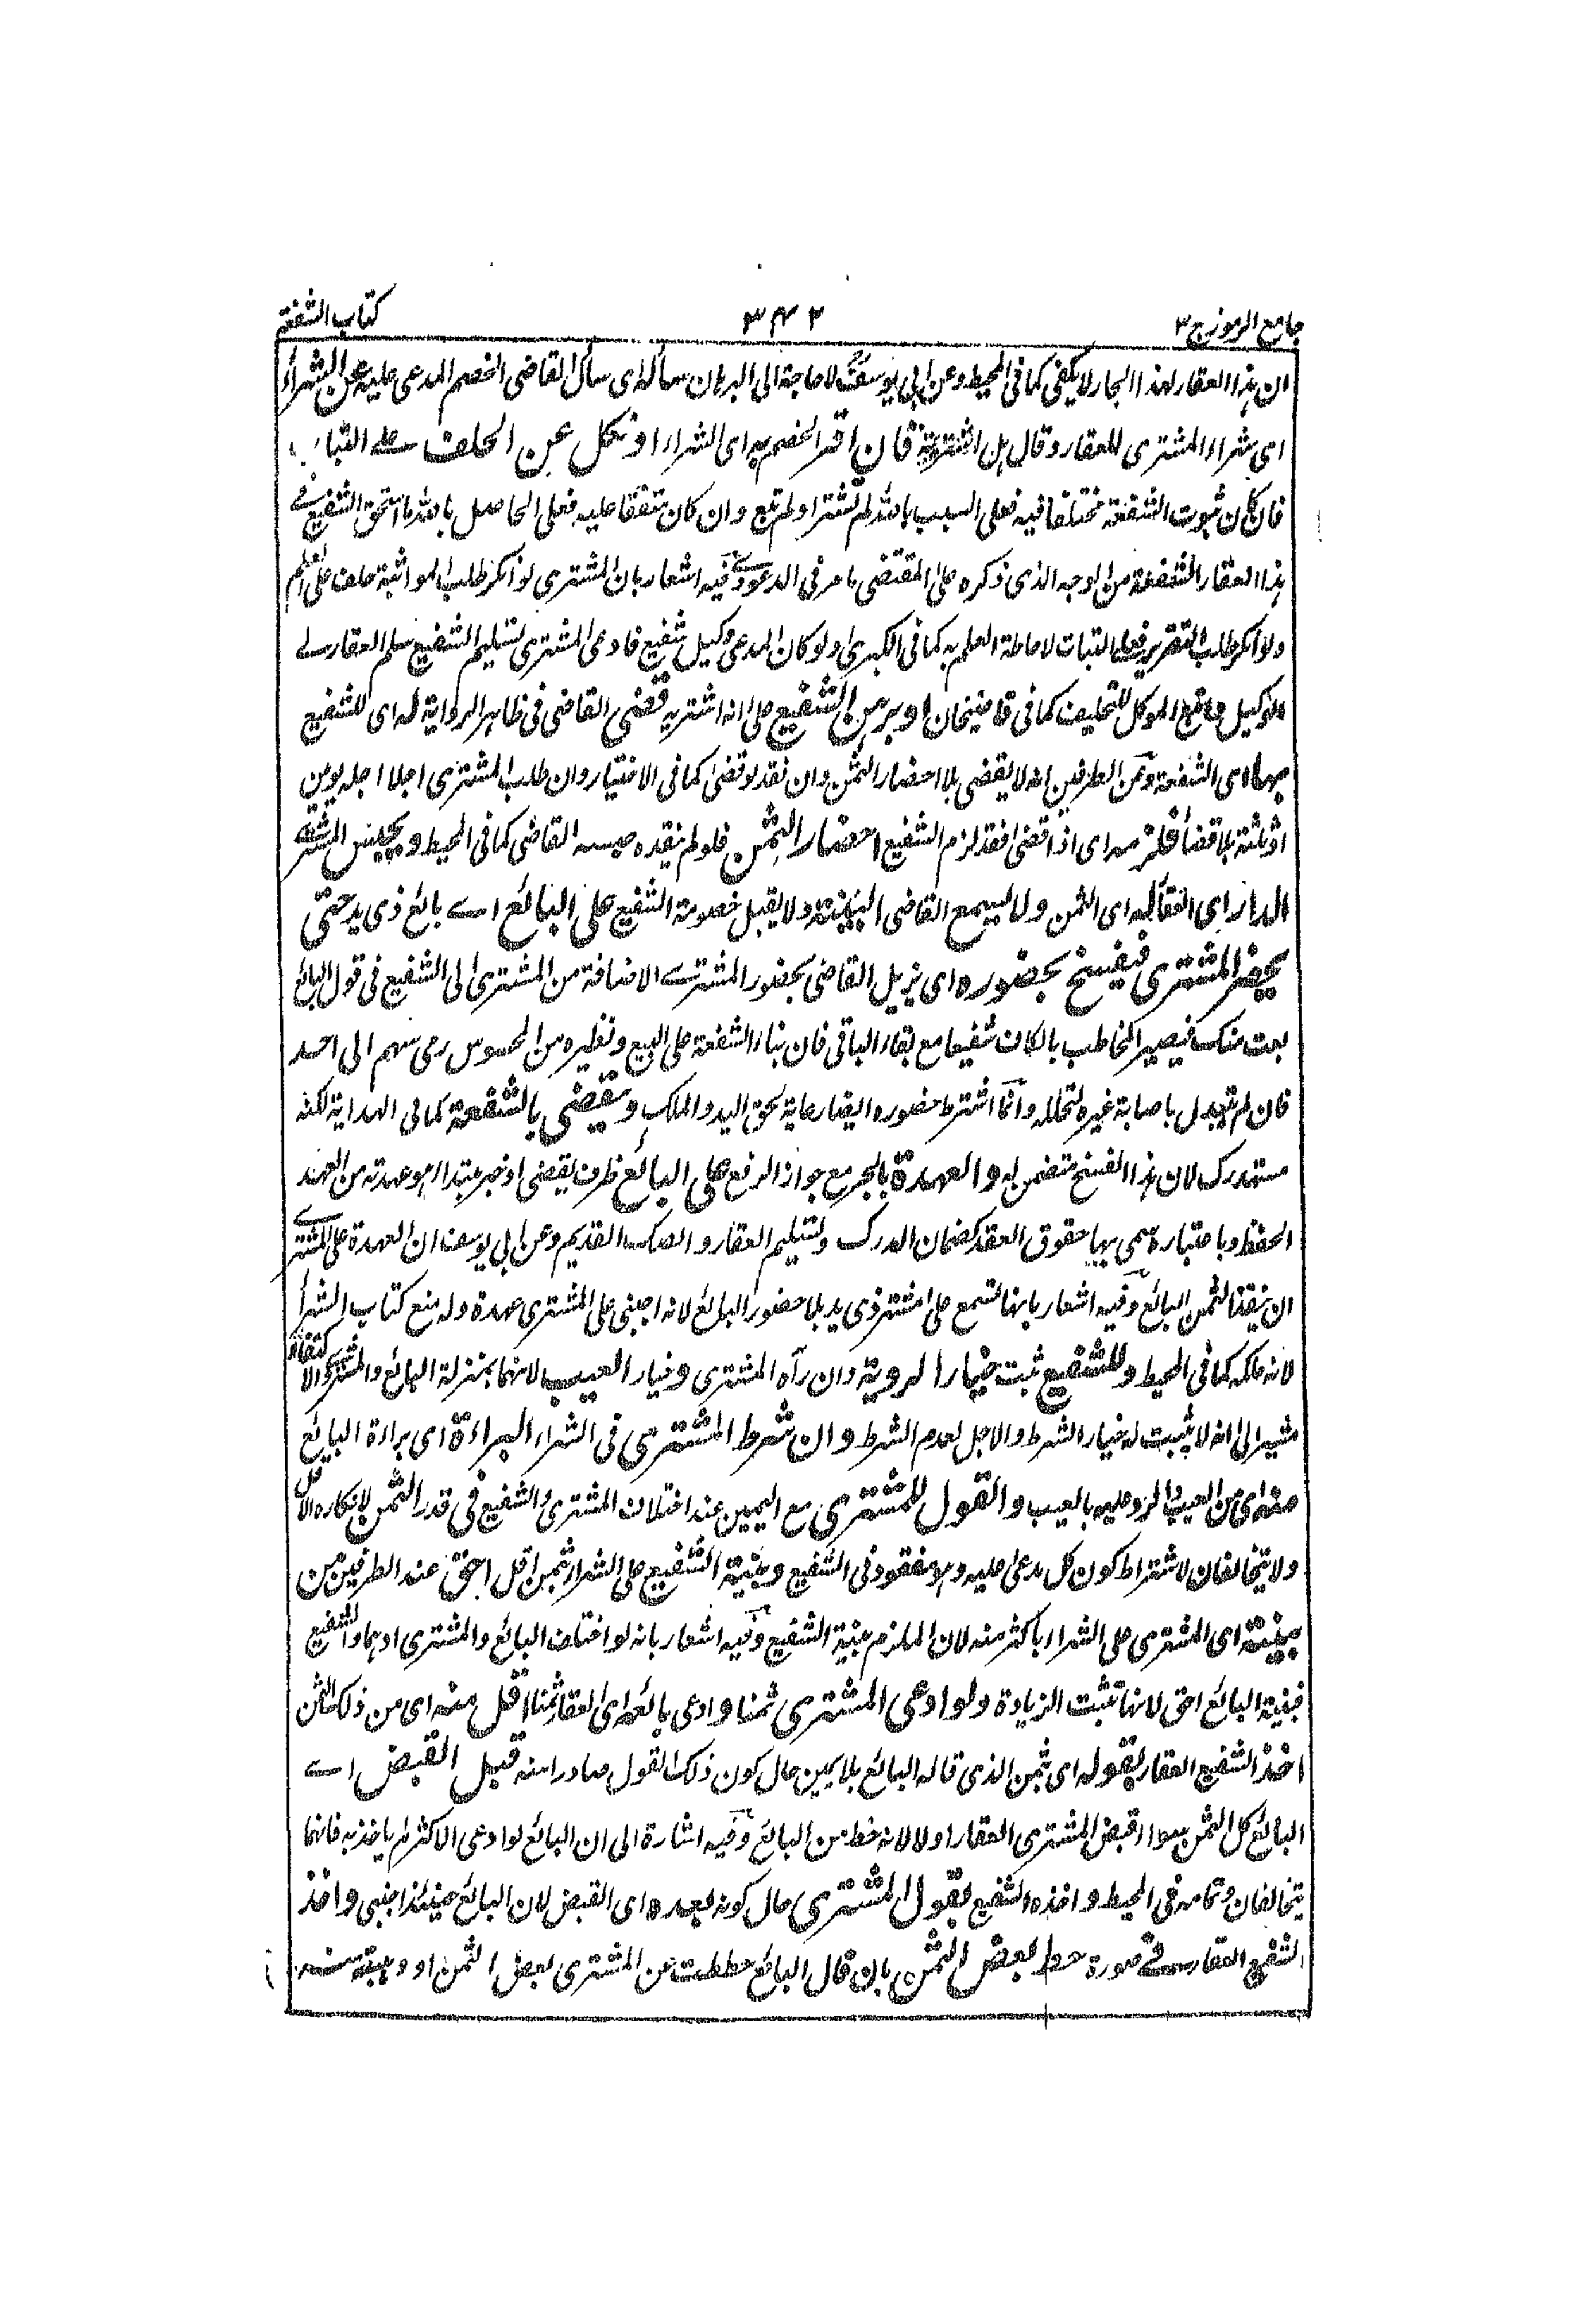 جامع الرموز ج ٣
٣٤٢
كتاب الشفعة
ان هذا العقار لهذا الجار لا يكفى كما فى المحيط وعن ابى يوسف لا حاجة الى البرهان سأله اى سأل القاضى الخصم المدعى عليه عن الشراء
اى شراء المشترى للعقار وقال هل اشتريته فان اقر الخصم به اى الشراء او نكل عن الحلف على
فان كان ثبوت الشفعة مختلفا فيه فعلى السبب بالله لم تشتر او لم تبع وان كان متفقا عليه فعلى الحاصل بالله ما استحق الشفيع فى
هذا العقار الشفعة من الوجه الذى ذكره على المقتضى ما مر فى الدعوى وفيه اشعار بان المشترى لو انكر طلب المواثبة حلف على العلم
ولو انكر طلب التقرير فعلى البتات لاحاطة العلم به كما فى الكبرى ولو كان المدعى وكيل شفيع فادعى المشترى تسليم الشفيع سلم العقار الى
الوكيل الموكل للتحليف كما فى قاضيخان او برهن الشفيع على انه اشتريه قضى القاضى فى ظاهر الرواية له اى للشفيع
بها اى الشفعة وعن الطرفين انه لا يقضى بلا احضار الثمن وان نقد لو قضى كما فى الاختيار وان طلب المشترى اجلا اجله يومين
او ثلثة بلا قضاء فلزمه اى اذا قضى فقد لزم الشفيع احضار الثمن فلو لم ينقده حبسه القاضى كما فى المحيط ويحبس المشترى
الدار اى العقار له اى الثمن ولا يسمع القاضى البينة ولا يقبل خصومة الشفيع على البائع اى بائع ذى يد حتى
يحضر المشترى فيفسخ بحضوره اى يزيل القاضى بحضور المشترى الاضافة من المشترى الى الشفيع فى قول البائع
بعت منك فيصير المخاطب بالكاف شفيعا مع بقاء الباقى فان بناء الشفعة على البيع ونظيره من المحسوس رمى سهم الى احد
فان لم يتبدل باصابة غيره لتخلله وانما اشترط حضوره ايضا رعاية لحق اليد والملك ويقضى بالشفعة كما فى الهداية لكنه
مستدرك لان هذا الفسخ متضمن له والعهدة بالجر مع جواز الرفع على البائع ظرف يقضى او خبر مبتدا هو عهدته من العهد
الحفظ وباعتباره سمى بها حقوق العقد كضمان الدرك وتسليم العقار والصك القديم وعن ابى يوسف ان العهدة على المشترى
ان نقد الثمن البائع وفيه اشعار بانها تسمع على مشتر ذى يد بلا حضور البائع لانه اجنبى على المشترى عهدة وله منع كتاب الشراء
لانه ملكه كما فى المحيط وللشفيع ثبت خيار الروية وان رآه المشترى وخيار العيب لانهما بمنزلة البائع والمشترى والاكتفاء
مشير الى انه لا يثبت له خيار الشرط والاجل لعدم الشرط وان شرط المشترى فى الشراء البراءة اى براءة البائع
منه اى من العيب والرد عليه بالعيب والقول للمشترى مع اليمين عند اختلاف المشترى والشفيع فى قدر الثمن لانكاره الاقل
ولا يتخالفان لاشتراط كون كل مدعى عليه وهو مفقود فى الشفيع وبينة الشفيع على الشراء بثمن اقل احق عند الطرفين من
بينة اى المشترى على الشراء باكثر منه لان الملزم بينة الشفيع وفيه اشعار بانه لو اختلف البائع والمشترى او هما والشفيع
فبينة البائع احق لانها تثبت الزيادة ولو ادعى المشترى ثمنا وادعى بائعه اى العقار ثمنا اقل منه اى من ذلك الثمن
اخذ الشفيع العقار بقوله اى بثمن الذى قاله البائع بلا يمين حال كون ذلك القول صادرا منه قبل القبض اى
البائع كل الثمن سواء قبض المشترى العقار اولا لانه حط من البائع وفيه اشارة الى ان البائع لو ادعى الاكثر لم ياخذ به فانهما
يتخالفان وتمامه فى المحيط واخذه الشفيع بقول المشترى حال كونه بعده اى القبض لان البائع حينئذ اجنبى واخذ
الشفيع العقار فى صورة حط بعض الثمن بان قال البائع حططت عن المشترى بعض الثمن او وهبته منه